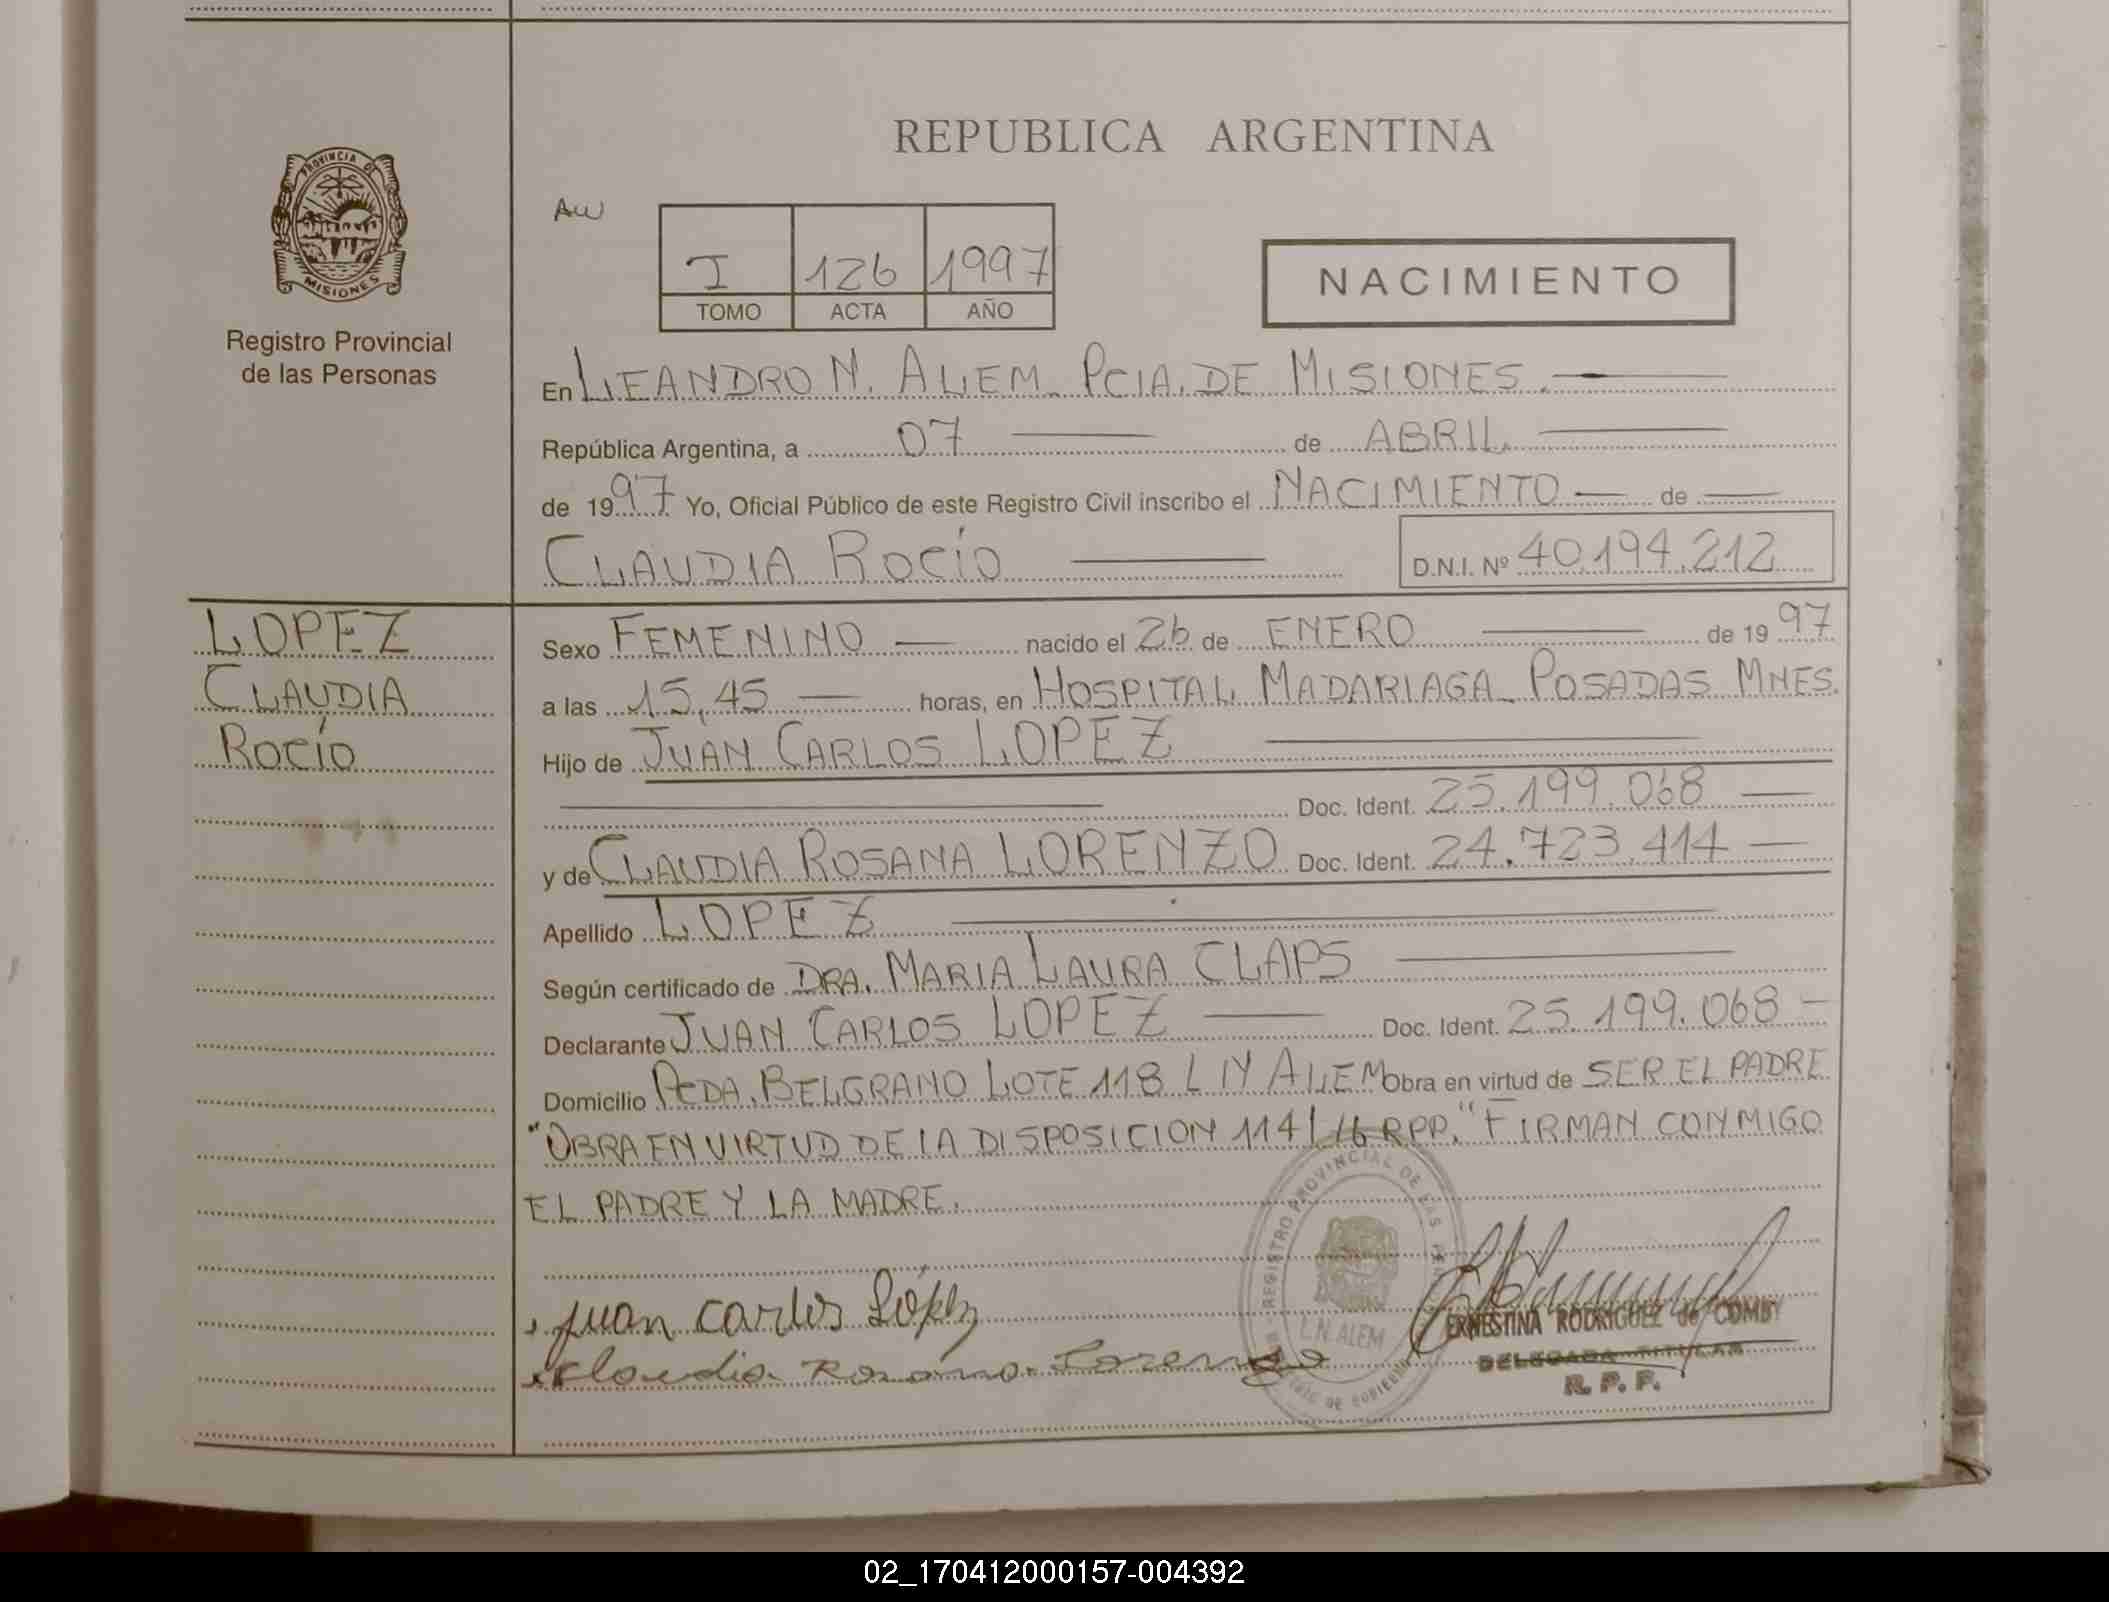 PROVINCIA DE
MISIONES
Registro Provincial
de las Personas
REPUBLICA ARGENTINA
AW
I 126 1997
TOMO ACTA AÑO
NACIMIENTO
En LEANDRO N. ALEM_ PCIA. DE MISIONES.
República Argentina, a 07 de ABRIL.
de 1997 Yo, Oficial Público de este Registro Civil inscribo el NACIMIENTO de
CLAUDIA ROCÍO D.N.I. Nº 40.194.212
LOPEZ
CLAUDIA
ROCÍO
Sexo FEMENINO nacido el 26 de ENERO de 1997
a las 15,45 horas, en HOSPITAL MADARIAGA_ POSADAS MNES.
Hijo de JUAN CARLOS LOPEZ
Doc. Ident. 25.199.068
y de CLAUDIA ROSANA LORENZO Doc. Ident. 24.723.414
Apellido LOPEZ
Según certificado de DRA. MARIA LAURA CLAPS
Declarante JUAN CARLOS LOPEZ Doc. Ident. 25.199.068
Domicilio PCDA. BELGRANO LOTE 118 L N ALEM Obra en virtud de SER EL PADRE
"OBRA EN VIRTUD DE LA DISPOSICION 114/ RPP." FIRMAN CONMIGO
EL PADRE Y LA MADRE.
Juan Carlos López
Claudia Rosana Lorenzo
REGISTRO PROVINCIAL DE LAS
L.N. ALEM
ERNESTINA RODRIGUEZ de COMBY
DELEGADA TITULAR
R. P. P.
02_170412000157-004392